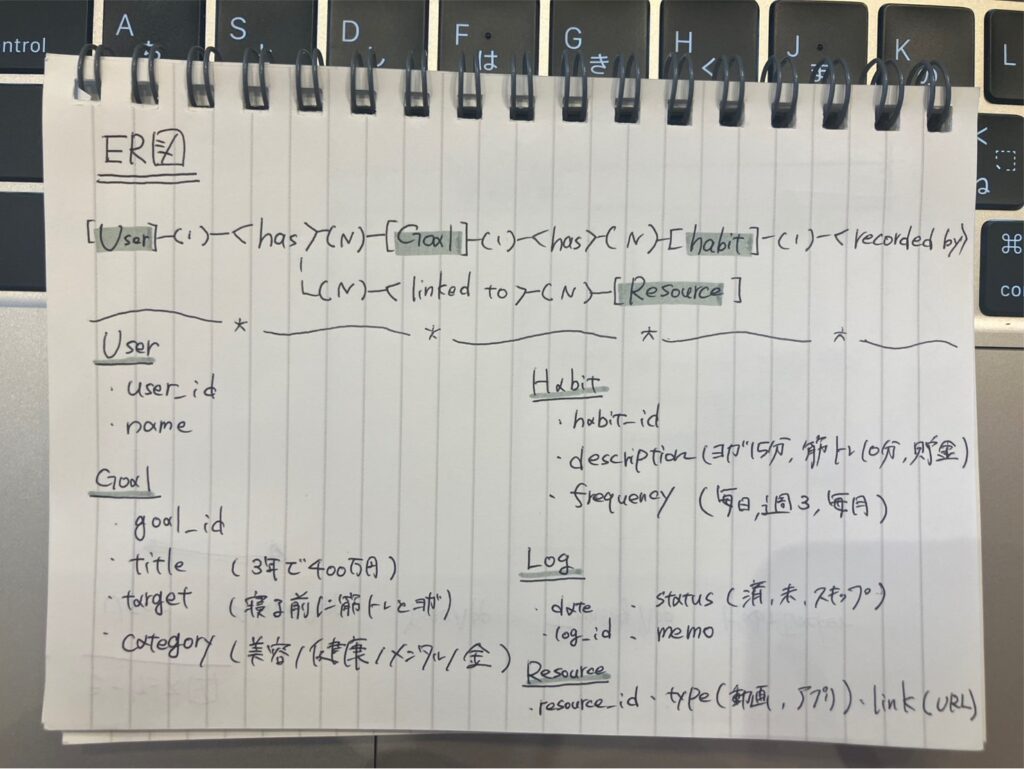 control
A ち
S
D し
F は
G き
H く
J ま
K の
L
く
ね
⌘
ER図
[User]-(1)-<has>(N)-[Goal]-(1)-<has>(N)-[habit]-(1)-<recorded by>
(N)-<linked to>-(N)-[Resource]
con
* * * *
User
・user_id
・name
Goal
・goal_id
・title (3年で400万円)
・target (寝る前に筋トレとヨガ)
・category (美容/健康/メンタル/金)
Habit
・habit_id
・description(ヨガ15分,筋トレ10分,貯金)
・frequency (毎日,週3,毎月)
Log
・date ・status (済,未,スキップ)
・log_id ・memo
Resource
・resource_id・type(動画,アプリ)・link(URL)